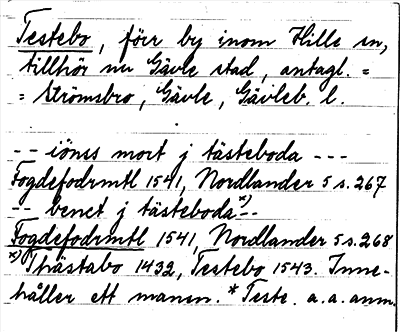 Testebo, förr by inom Hille sn,
tillhör nu Gävle stad, antagl. =
= Strömsbro, Gävle, Gävleb. l.
-- iönss mort j tästeboda ---
Fogdefodrmtl 1541, Nordlander 5 s. 267
-- benct j tästeboda*)--
Fogdefodrmtl 1541, Nordlander 5 s. 268
*) Thästabo 1432, Testebo 1543. Inne-
håller ett mansn. *Teste. a.a. anm.